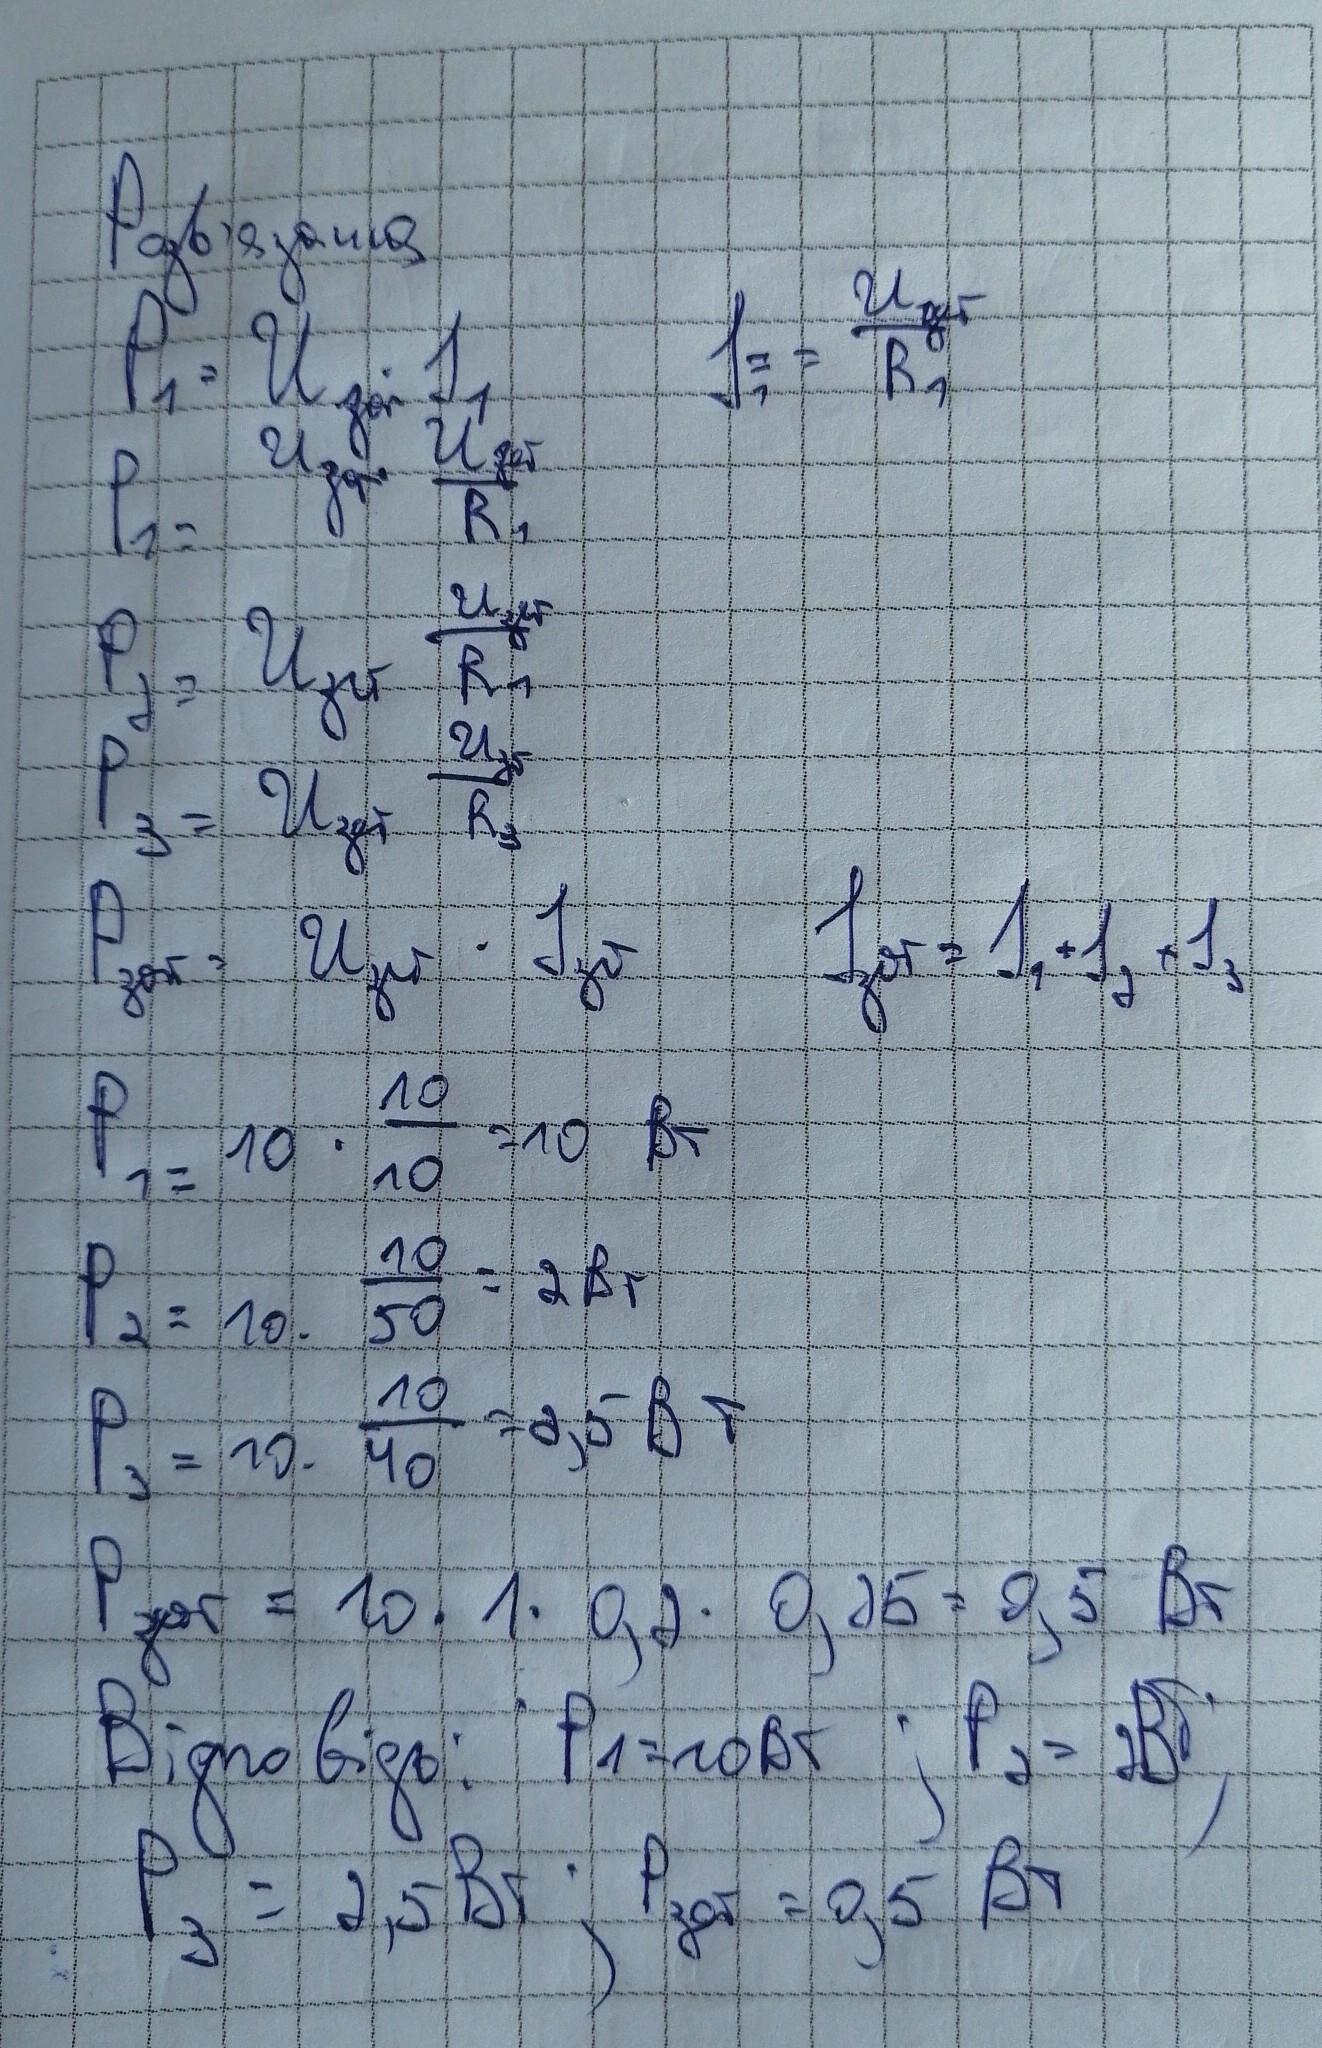 Розв'язання
P₁ = U заг · I₁ I₁ = = U заг / R₁
P₁ = U заг · U заг / R₁
P₂ = U заг U заг / R₁
P₃ = U заг U заг / R₃
P заг = U заг · I заг I заг = I₁ + I₂ + I₃
P₁ = 10 · 10/10 = 10 Вт
P₂ = 10 · 10/50 = 2 Вт
P₃ = 10 · 10/40 = 2,5 Вт
P заг = 10 · 1 · 0,2 · 0,25 = 0,5 Вт
Відповідь: P₁ = 10 Вт ; P₂ = 2 Вт ;
P₃ = 2,5 Вт ; P заг = 0,5 Вт